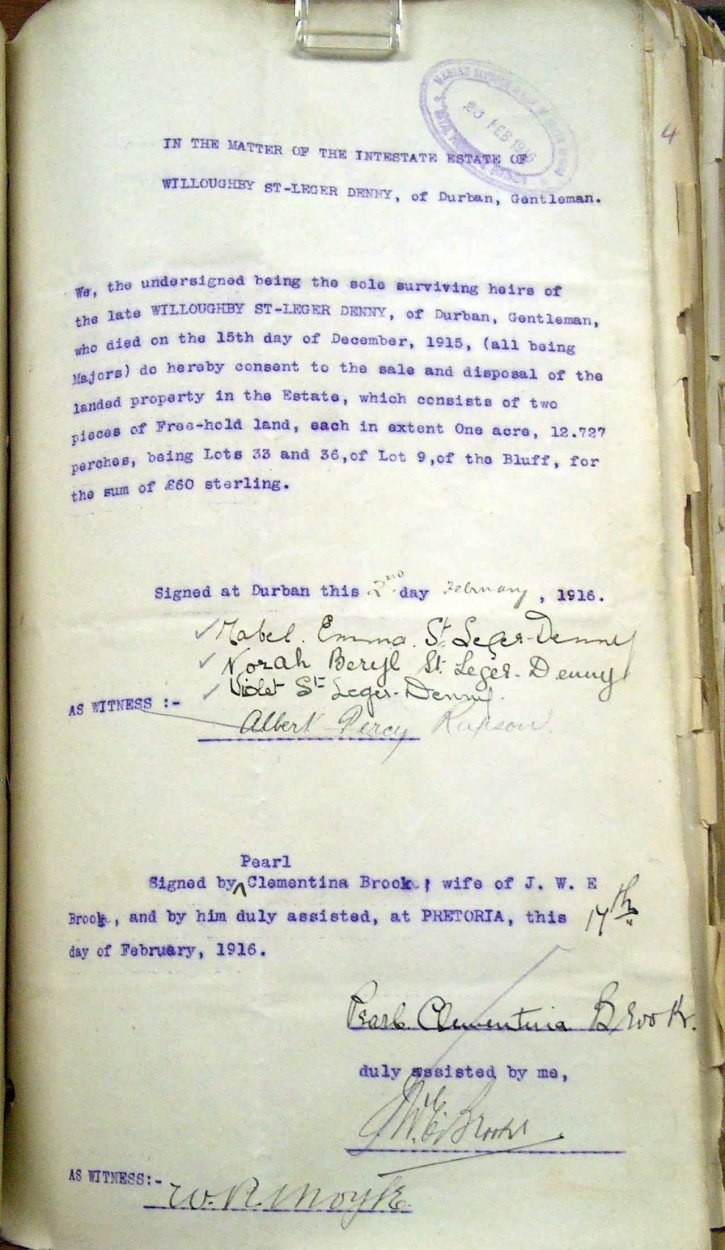 23 FEB 1916
4
IN THE MATTER OF THE INTESTATE ESTATE OF
WILLOUGHBY ST-LEGER DENNY, of Durban, Gentleman.
We, the undersigned being the sole surviving heirs of
the late WILLOUGHBY ST-LEGER DENNY, of Durban, Gentleman,
who died on the 15th day of December, 1915, (all being
Majors) do hereby consent to the sale and disposal of the
landed property in the Estate, which consists of two
pieces of Free-hold land, each in extent One acre, 12.727
perches, being Lots 33 and 36,of Lot 9,of the Bluff, for
the sum of £60 sterling.
Signed at Durban this 2nd day February, 1916.
Mabel. Emma. St Leger-Denny
Norah Beryl St. Leger-Denny
Violet St-Leger-Denny.
AS WITNESS :-
Albert Percy
Pearl
Signed by Clementina Brook, wife of J. W. E
Brook, and by him duly assisted, at PRETORIA, this 17th
day of February, 1916.
Pearl Clementina Brook.
duly assisted by me,
JWE Brook
AS WITNESS:-
W. R.